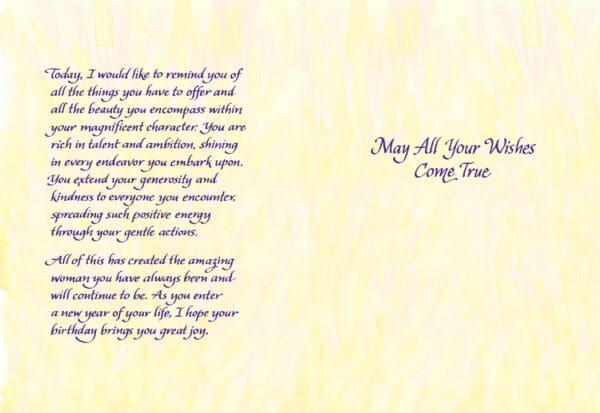 Today, I would like to remind you of
all the things you have to offer and
all the beauty you encompass within
your magnificent character. You are
rich in talent and ambition, shining
in every endeavor you embark upon.
You extend your generosity and
kindness to everyone you encounter,
spreading such positive energy
through your gentle actions.
All of this has created the amazing
woman you have always been and
will continue to be. As you enter
a new year of your life, I hope your
birthday brings you great joy.
May All Your Wishes
Come True